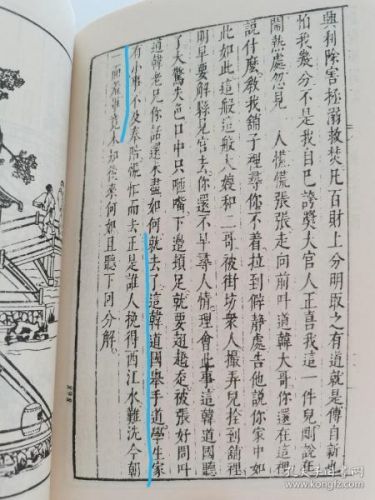 興利除害拯溺救焚凡百財上分明取之有道就是傅自新也
怕我幾分不是我自己誇獎大官人正喜我這一件兒剛說
鬧熱處忽見一人慌慌張張走向前叫道韓大哥你還在這裡
說什麼教我舖子裡尋你不着拉到僻靜處告他說你家中如
此如此這般這般大嫂和二哥被街坊衆人撮弄兒拴到舖裡
明早要解縣見官去你還不早尋人情理會此事這韓道國聽
了大驚失色口中只咂嘴下邊頓足就要翅趫走被張好問叫
道韓老兄你話還未盡如何就去了這韓道國舉手道學生家
有小事不及奉陪慌忙而去正是誰人挽得西江水難洗今朝
一面羞畢竟未知後來何如且聽下回分解